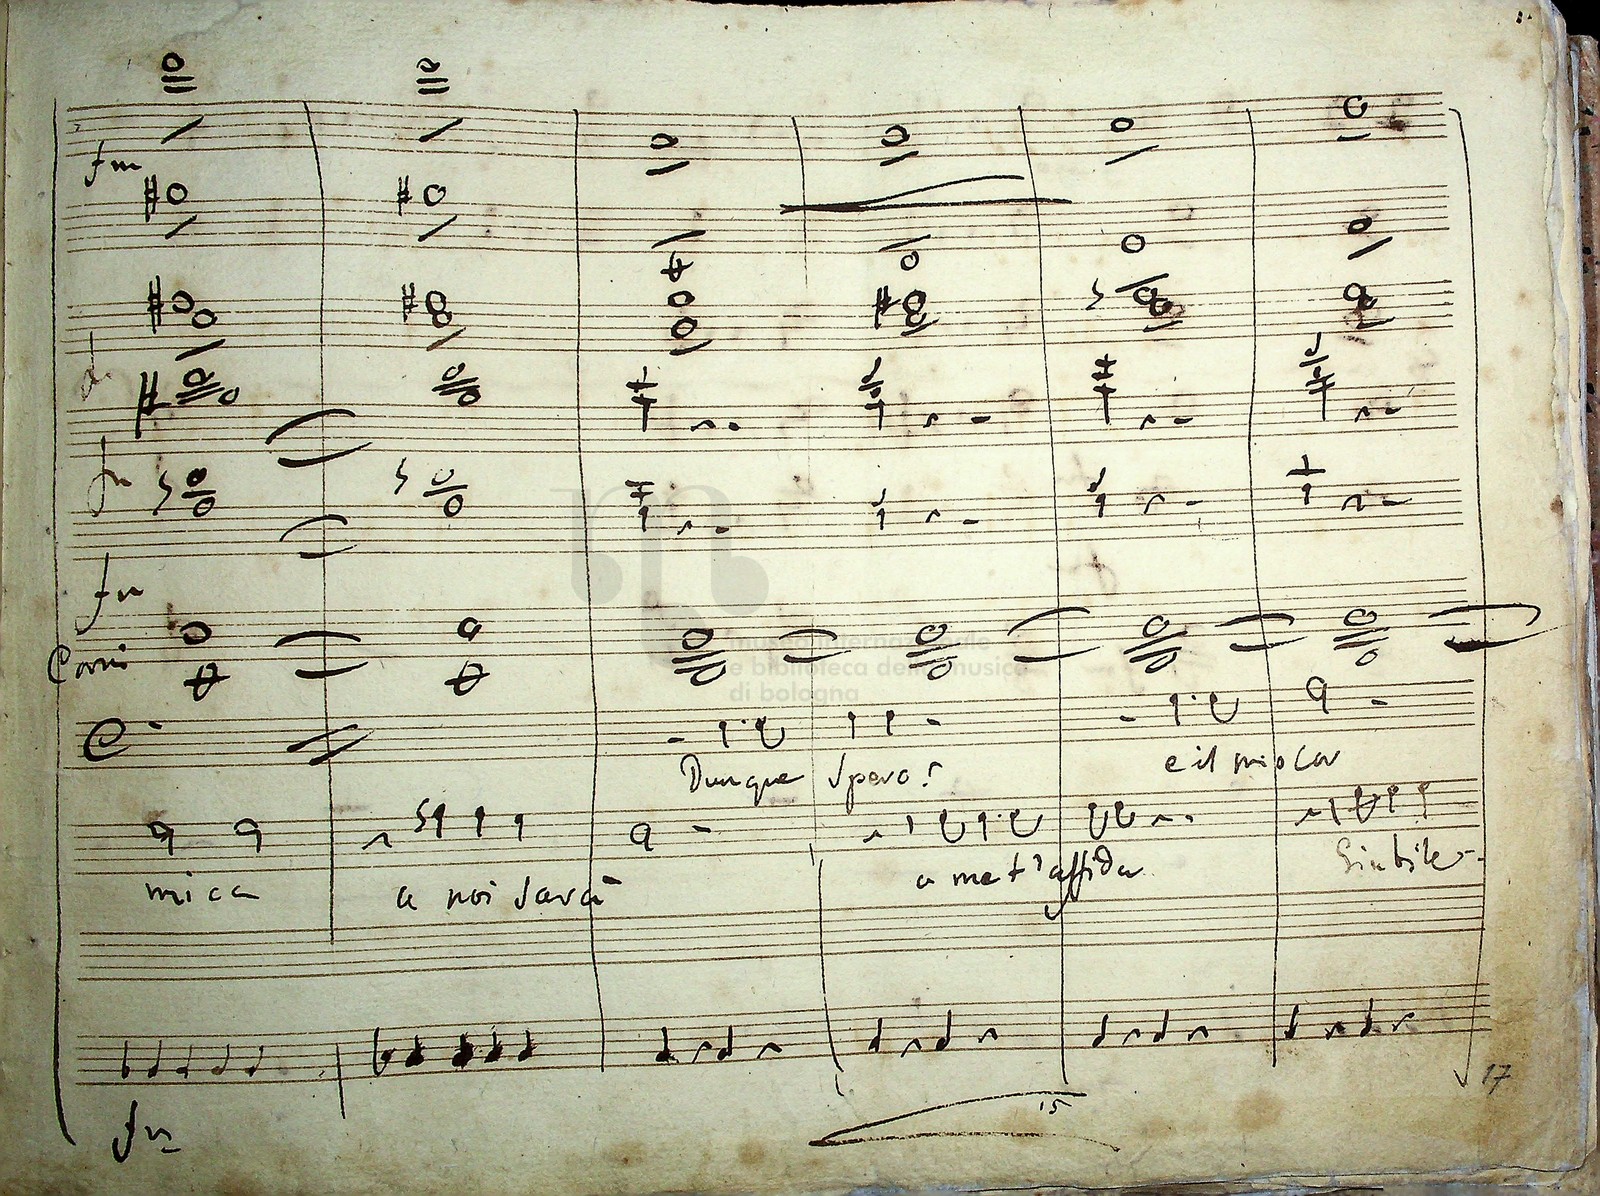 Corni
museo internazionale
e biblioteca della musica
di bologna
Dunque spero?
e il mio cor
mica
a noi sarà
a me t'affida
Giubile
15
17